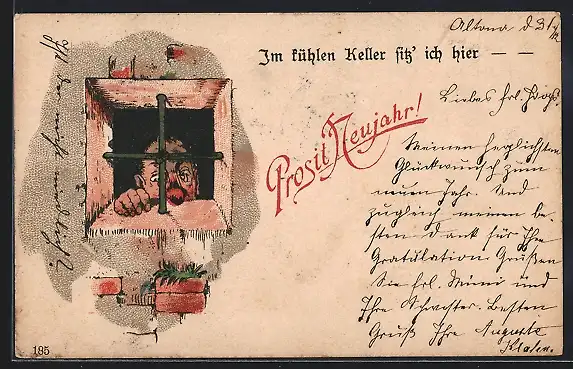 Altona d 31/12
Im kühlen Keller sitz' ich hier — —
Prosit Neujahr!
Liebes Frl.
Meinen herzlichsten
Glückwunsch zum
neuen Jahr. Und
zugleich meinen be-
sten Dank für Ihre
Gratulation. Grüßen
Sie Frl. Mimi und
Ihre Schwester. Besten
Gruß Ihre Auguste
195